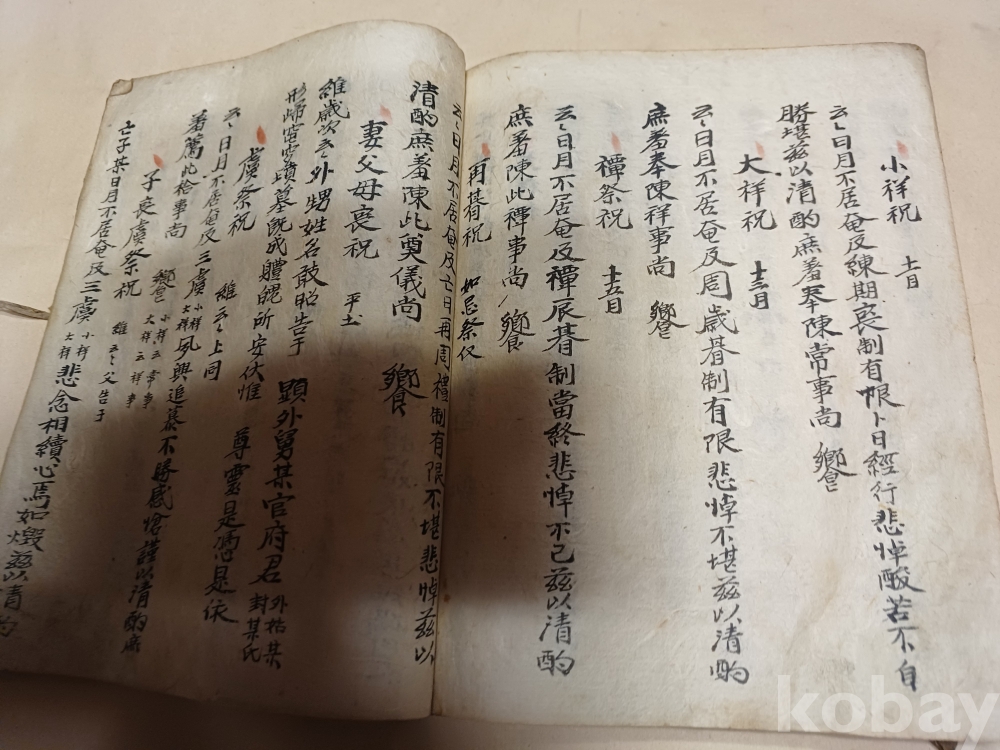 小祥祝 十一月
云〻日月不居奄及練期喪制有限卜日經行悲悼酸苦不自
勝堪玆以清酌庶羞奉陳常事尚 饗
大祥祝 十三月
云〻日月不居奄及周歲朞制有限悲悼不堪玆以清酌
庶羞奉陳祥事尚 饗
禫祭祝 十五月
云〻日月不居奄及禫辰朞制當終悲悼不已玆以清酌
庶羞陳此禫事尚 饗
再朞祝 如忌祭仪
云〻日月不居奄及亡日再周禮制有限不堪悲悼玆以
清酌庶羞陳此奠儀尚 饗
妻父母喪祝 平土
維歲次云〻外甥姓名敢昭告于 顯外舅某官府君 外姑某封某氏
形歸窀穸墳墓既成軆魄所安伏惟 尊靈是憑是依
虞祭祝 維云〻上同
云〻日月不居奄及三虞 小祥 大祥 夙興追慕不勝感愴謹以清酌庶
羞薦此 事尚 饗 小祥云常事 大祥云祥事
子喪虞祭祝 維云〻父告于
亡子某日月不居奄及三虞 小祥 大祥 悲念相續心焉如燬玆以清酌
kobay